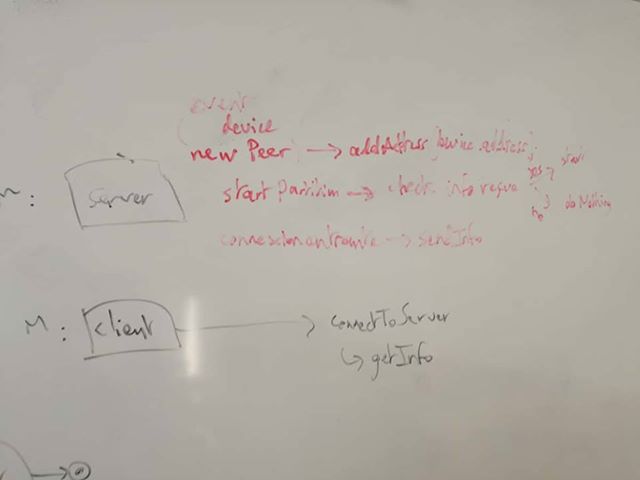 event
device
new Peer) → addAddress(device.address);
start Partition → check info reçue
yes → start
no → do Nothing
connexion entrante → sendInfo
n : server
M : client → connectToServer
↳ getInfo